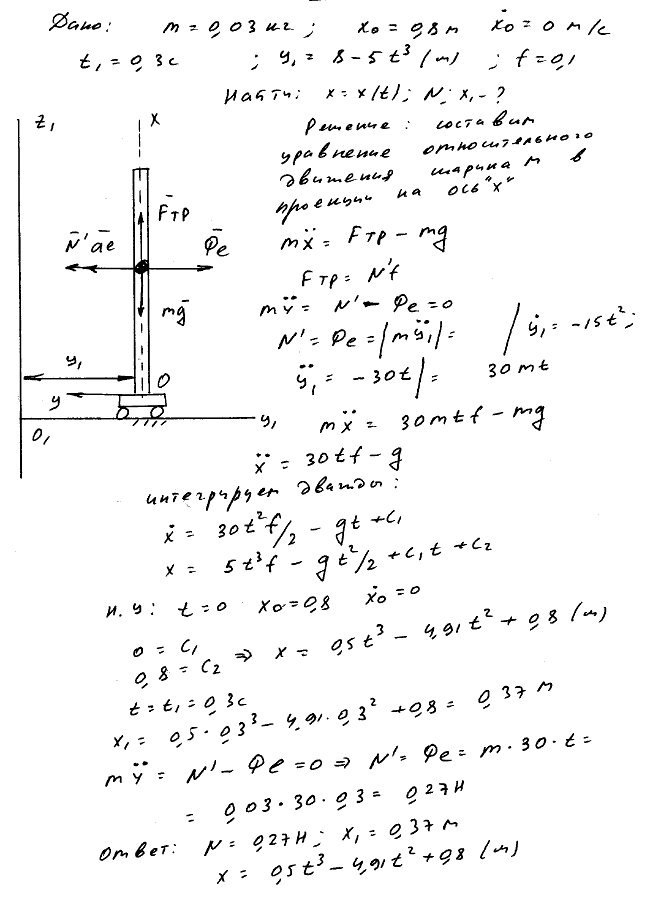 Дано: m = 0,03 кг; x₀ = 0,8 м ẋ₀ = 0 м/с
t₁ = 0,3 с ; y₁ = 8 - 5t³ (м) ; f = 0,1
Найти: x = x(t); N; x₁ - ?
z₁ x
Решение: составим
уравнение относительного
движения шарика м в
проекции на ось "x"
F̄тр
N̄' āe Φ̄e
mḡ
y₁
y O
y₁
O₁
mẍ = Fтр - mg
Fтр = N'f
mÿ = N' - Φe = 0
N' = Φe = |mÿ₁| = / ẏ₁ = -15t²;
ÿ₁ = -30t| = 30mt
mẍ = 30mtf - mg
ẍ = 30tf - g
интегрирует дважды:
ẋ = 30t²f/2 - gt + C₁
x = 5t³f - gt²/2 + C₁t + C₂
н.у: t = 0 x₀ = 0,8 ẋ₀ = 0
0 = C₁
0,8 = C₂ ⇒ x = 0,5t³ - 4,91t² + 0,8 (м)
t = t₁ = 0,3 с
x₁ = 0,5·0,3³ - 4,91·0,3² + 0,8 = 0,37 м
mÿ = N' - Φe = 0 ⇒ N' = Φe = m·30·t =
= 0,03·30·0,3 = 0,27 Н
Ответ: N = 0,27 Н; x₁ = 0,37 м
x = 0,5t³ - 4,91t² + 0,8 (м)